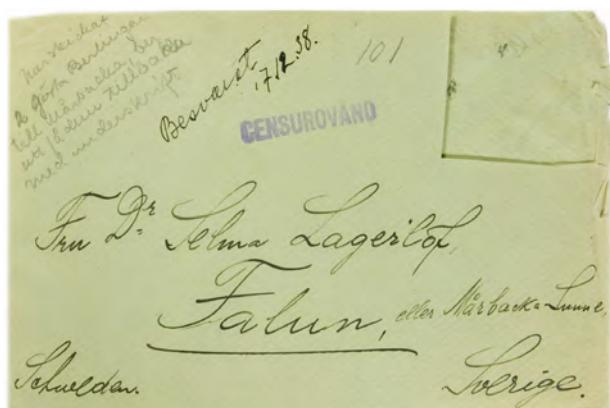 Har skickat
2 Gösta Berlingar
till Mårbacka, ber
att få dem tillbaka
med underskrift
Besvarat
17.12.38.
101
CENSUROVÁNO
Fru Dr Selma Lagerlöf,
Falun, eller Mårbacka-Sunne,
Schweden. Sverige.